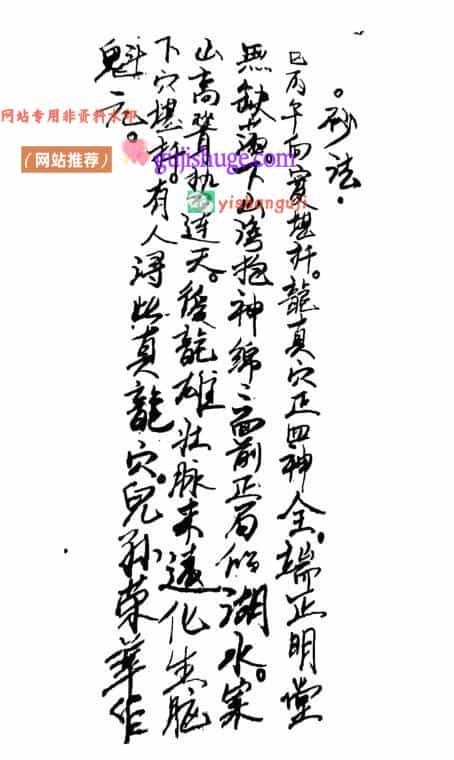 砂法。
巳丙午向實堪扦。龍真穴正四神全。端正明堂
無缺下山湾抱神綿々面前正局湖水。案
山高聳連天。後龍雄壮脉来遠化生腦
下穴堪扦。有人得此真龍穴。兒孫荣華作
魁元。
网站专用非资料本部
（网站推荐）
gujishuge.com
yishanguji